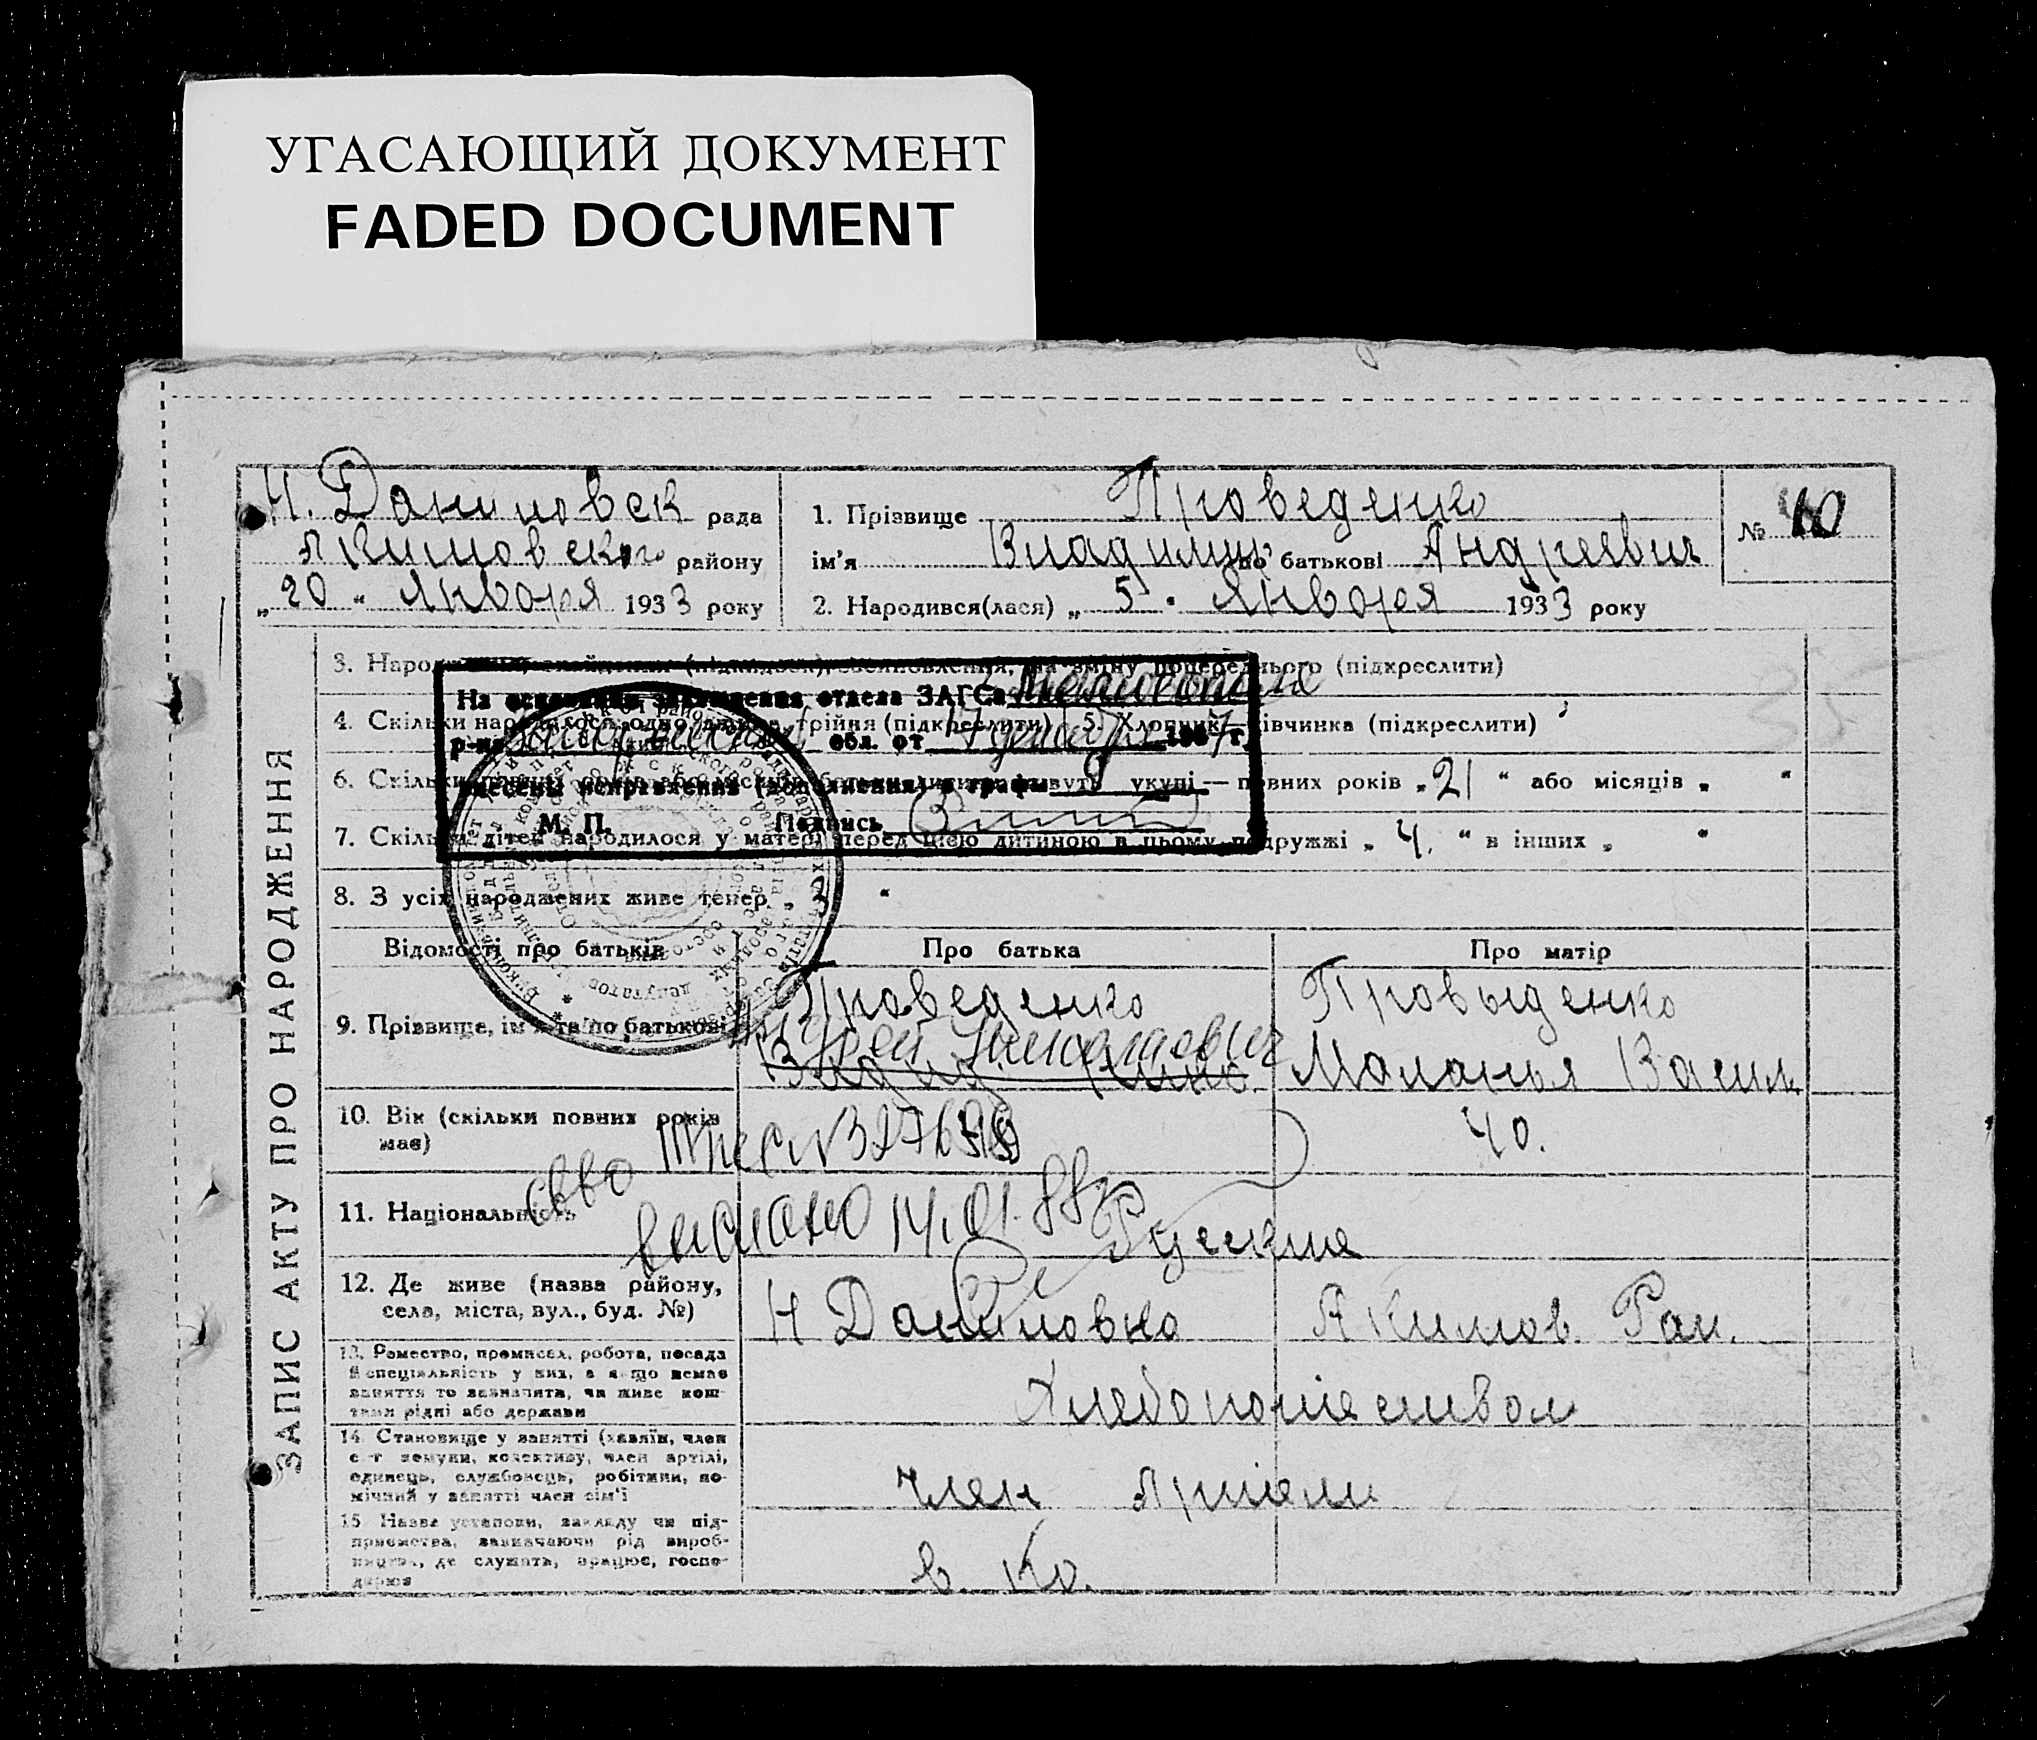 УГАСАЮЩИЙ ДОКУМЕНТ
FADED DOCUMENT
ЗАПИС АКТУ ПРО НАРОДЖЕННЯ
Н. Даниловск рада
Якимовского району
„20“ Января 1933 року
1. Прізвище Проведенко
ім'я Владимир по батькові Андреевич
2. Народився(лася) „5“ Января 1933 року
№ 10
3. Народження, на зміну попереднього (підкреслити)
4. Скільки народилося: одно, трійня (підкреслити) 5. Хлопчик — дівчинка (підкреслити)
На основании заключения отдела ЗАГСа
р-на обл. от 17 декабря 1987 г.
внесены исправления (дополнения) в графы 9
М. П. Подпись
6. Скільки укупі — повних років „21“ або місяців „ “
7. Скільки дітей народилося у матері перед цією дитиною в цьому подружжі „4.“ в інших „ “
8. З усіх народжених живе тепер „3“
Відомості про батьків Про батька Про матір
9. Прізвище, ім'я та по батькові Проведенко Провыденко
Андрей Николаевич
Маланья Васил
10. Вік (скільки повних років має) 40.
выслано 14.01.88г
11. Національність Русские
12. Де живе (назва району, села, міста, вул., буд. №) Н Даниловка Акимов. Рай.
13. Ремество, промисел, робота, посада й спеціяльність у них, а якщо немає заняття то зазначити, чи живе коштами рідні або держави
Хлебопашеством
14. Становище у занятті (хазяїн, член с-г комуни, колективу, член артілі, одинець, службовець, робітник, помічний у занятті член сім'ї
член Артели
15. Назва установи, закладу чи підприємства, зазначаючи рід виробництва, де служить, працює, господарює